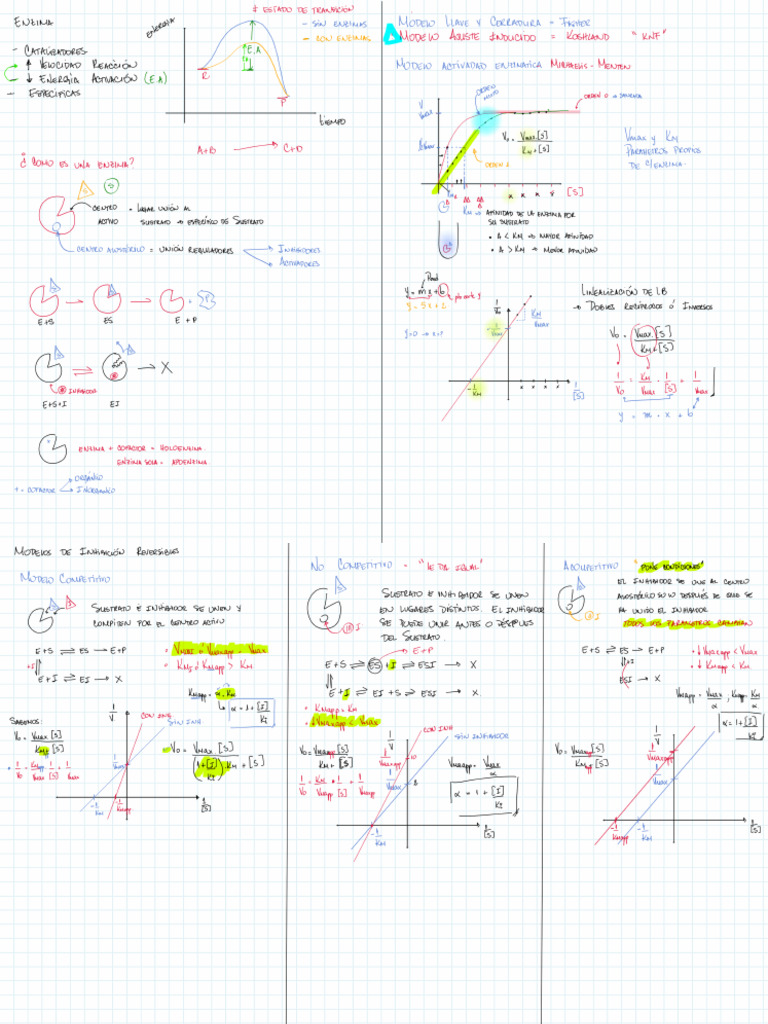 ENZIMA
- CATALIZADORES
↑ VELOCIDAD REACCIÓN
↓ ENERGÍA ACTIVACIÓN (EA)
- ESPECÍFICAS
ENERGÍA
‡ ESTADO DE TRANSICIÓN
- SIN ENZIMAS
- CON ENZIMAS
E.A
R
P
TIEMPO
A+B → C+D
¿COMO ES UNA ENZIMA?
S
S
CENTRO ACTIVO = LUGAR UNIÓN AL SUSTRATO → ESPECÍFICO DE SUSTRATO
CENTRO ALOSTÉRICO = UNIÓN REGULADORES
INHIBIDORES
ACTIVADORES
E+S
ES
E + P
INHIBIDOR
→ X
E+S+I
EI
ENZIMA + COFACTOR = HOLOENZIMA
ENZIMA SOLA = APOENZIMA
+ COFACTOR
ORGÁNICO
INORGÁNICO
MODELO LLAVE Y CERRADURA - FISHER
MODELO AJUSTE INDUCIDO = KOSHLAND "KNF"
MODELO ACTIVIDAD ENZIMÁTICA MICHAELIS-MENTEN
V
VMAX
ORDEN MIXTO
ORDEN 0
ORDEN 1
V₀ = VMAX [S] / KM + [S]
VMAX Y KM
PARÁMETROS PROPIOS
DE C/ENZIMA
[S]
KM → AFINIDAD DE LA ENZIMA POR
SU SUSTRATO
• A < KM → MAYOR AFINIDAD
• A > KM → MENOR AFINIDAD
Y = m x + b
Y = 5x + 2
Y=0 → x=?
1/V₀
KM/VMAX
1/VMAX
-1/KM
1/[S]
LINEALIZACIÓN DE LB
→ DOBLES RECÍPROCOS Ó INVERSOS
V₀ = VMAX [S] / KM + [S]
1/V₀ = KM/VMAX · 1/[S] + 1/VMAX
y = m · x + b
MODELOS DE INHIBICIÓN REVERSIBLES
MODELO COMPETITIVO
SUSTRATO E INHIBIDOR SE UNEN Y
COMPITEN POR EL CENTRO ACTIVO
E+S ⇌ ES → E+P
+I
E+I ⇌ EI → X
= KMI Ó KMAPP > KM
KMAPP = α · KM
α = 1 + [I]/KI
SABEMOS:
V₀ = VMAX [S] / KMAPP [S]
1/V₀ = KMAPP/VMAX · 1/[S] + 1/VMAX
1/V
CON INH
SIN INH
1/VMAX
-1/KM
-1/KMAPP
1/[S]
V₀ = VMAX [S] / (1+[I]/KI) KM + [S]
NO COMPETITIVO = "LE DA IGUAL"
I
SUSTRATO E INHIBIDOR SE UNEN
EN LUGARES DISTINTOS. EL INHIBIDOR
SE PUEDE UNIR ANTES O DESPUES
DEL SUSTRATO.
E+P
E+S ⇌ ES + I ⇌ ESI → X
E+I ⇌ EI + S ⇌ ESI → X
= KMAPP = KM
= ↓ VMAXAPP < VMAX
V₀ = VMAXAPP [S] / KM + [S]
1/V₀ = KM/VMAPP · 1/[S] + 1/VMAPP
1/V
CON INH
SIN INHIBIDOR
-1/KM
1/[S]
VMAXAPP = VMAX/α
α = 1 + [I]/KI
ACOMPETITIVO "PONE CONDICIONES"
I
EL INHIBIDOR SE UNE AL CENTRO
ALOSTÉRICO SOLO DESPUÉS DE QUE SE
HA UNIDO EL INHIBIDOR
TODOS LOS PARÁMETROS CAMBIAN
E+S ⇌ ES → E+P
+I
ESI → X
= ↓ VMAXAPP < VMAX
= ↓ KMAPP < KM
VMAXAPP = VMAX/α , KMAPP = KM/α
α = 1 + [I]/KI
V₀ = VMAXAPP [S] / KMAPP [S]
1/V
1/VMAXAPP
1/VMAX
-1/KMAPP
-1/KM
1/[S]